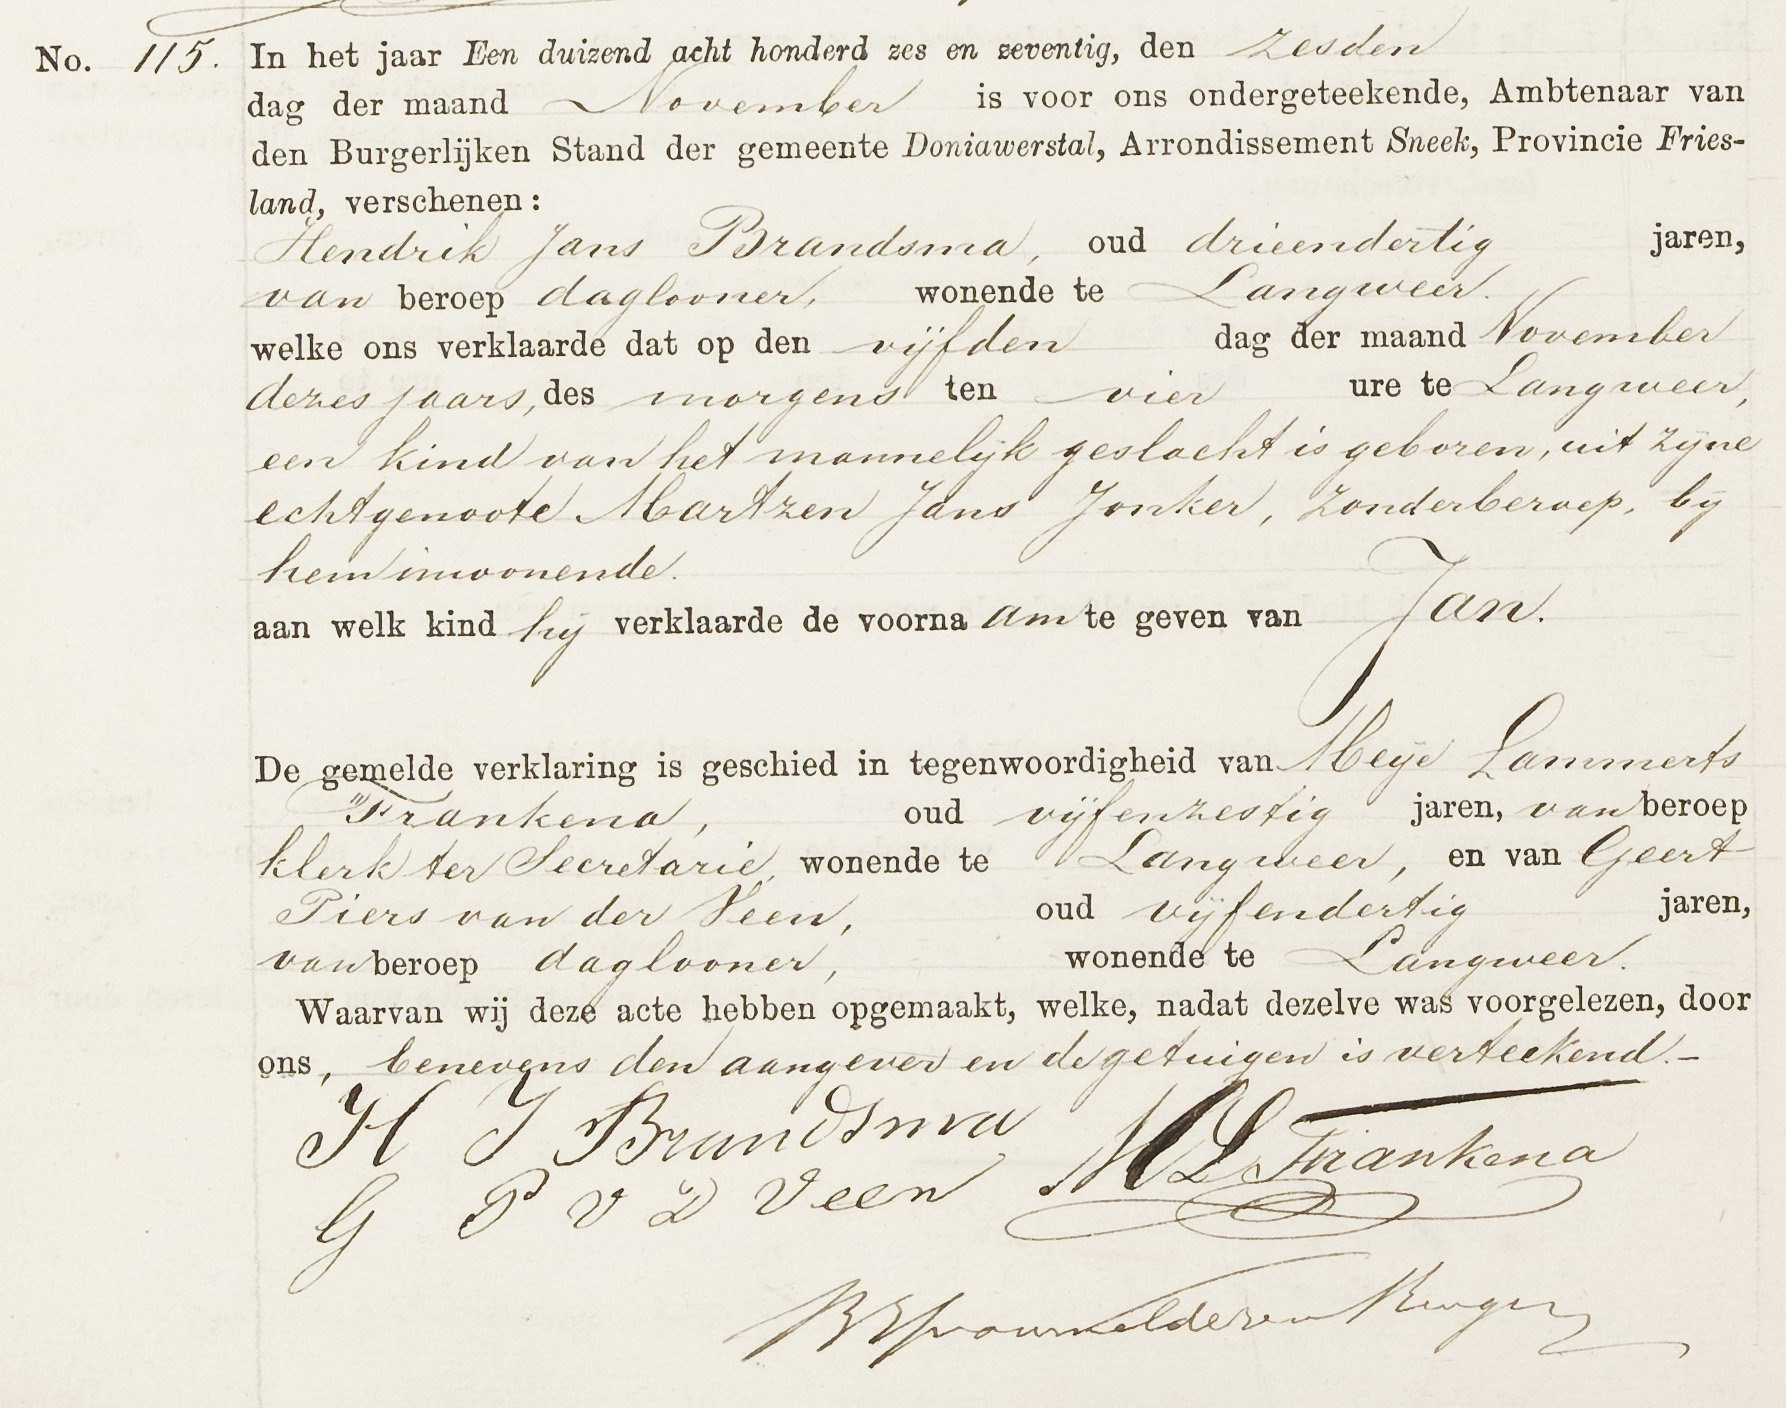 No. 115. In het jaar Een duizend acht honderd zes en zeventig, den zesden
dag der maand November is voor ons ondergeteekende, Ambtenaar van
den Burgerlijken Stand der gemeente Doniawerstal, Arrondissement Sneek, Provincie Fries-
land, verschenen:
Hendrik Jans Brandsma, oud drieendertig jaren,
van beroep daglooner, wonende te Langweer.
welke ons verklaarde dat op den vijfden dag der maand November
dezes jaars, des morgens ten vier ure te Langweer,
een kind van het mannelijk geslacht is geboren, uit zijne
echtgenoote Martzen Jans Jonker, zonder beroep, bij
hem inwonende.
aan welk kind hij verklaarde de voorna am te geven van Jan.
De gemelde verklaring is geschied in tegenwoordigheid van Meije Lammerts
Frankena, oud vijfenzestig jaren, van beroep
klerk ter Secretarie, wonende te Langweer, en van Geert
Piers van der Veen, oud vijfendertig jaren,
van beroep daglooner, wonende te Langweer.
Waarvan wij deze acte hebben opgemaakt, welke, nadat dezelve was voorgelezen, door
ons, benevens den aangever en de getuigen is verteekend.-
H J Brandsma M L Frankena
G P v D Veen